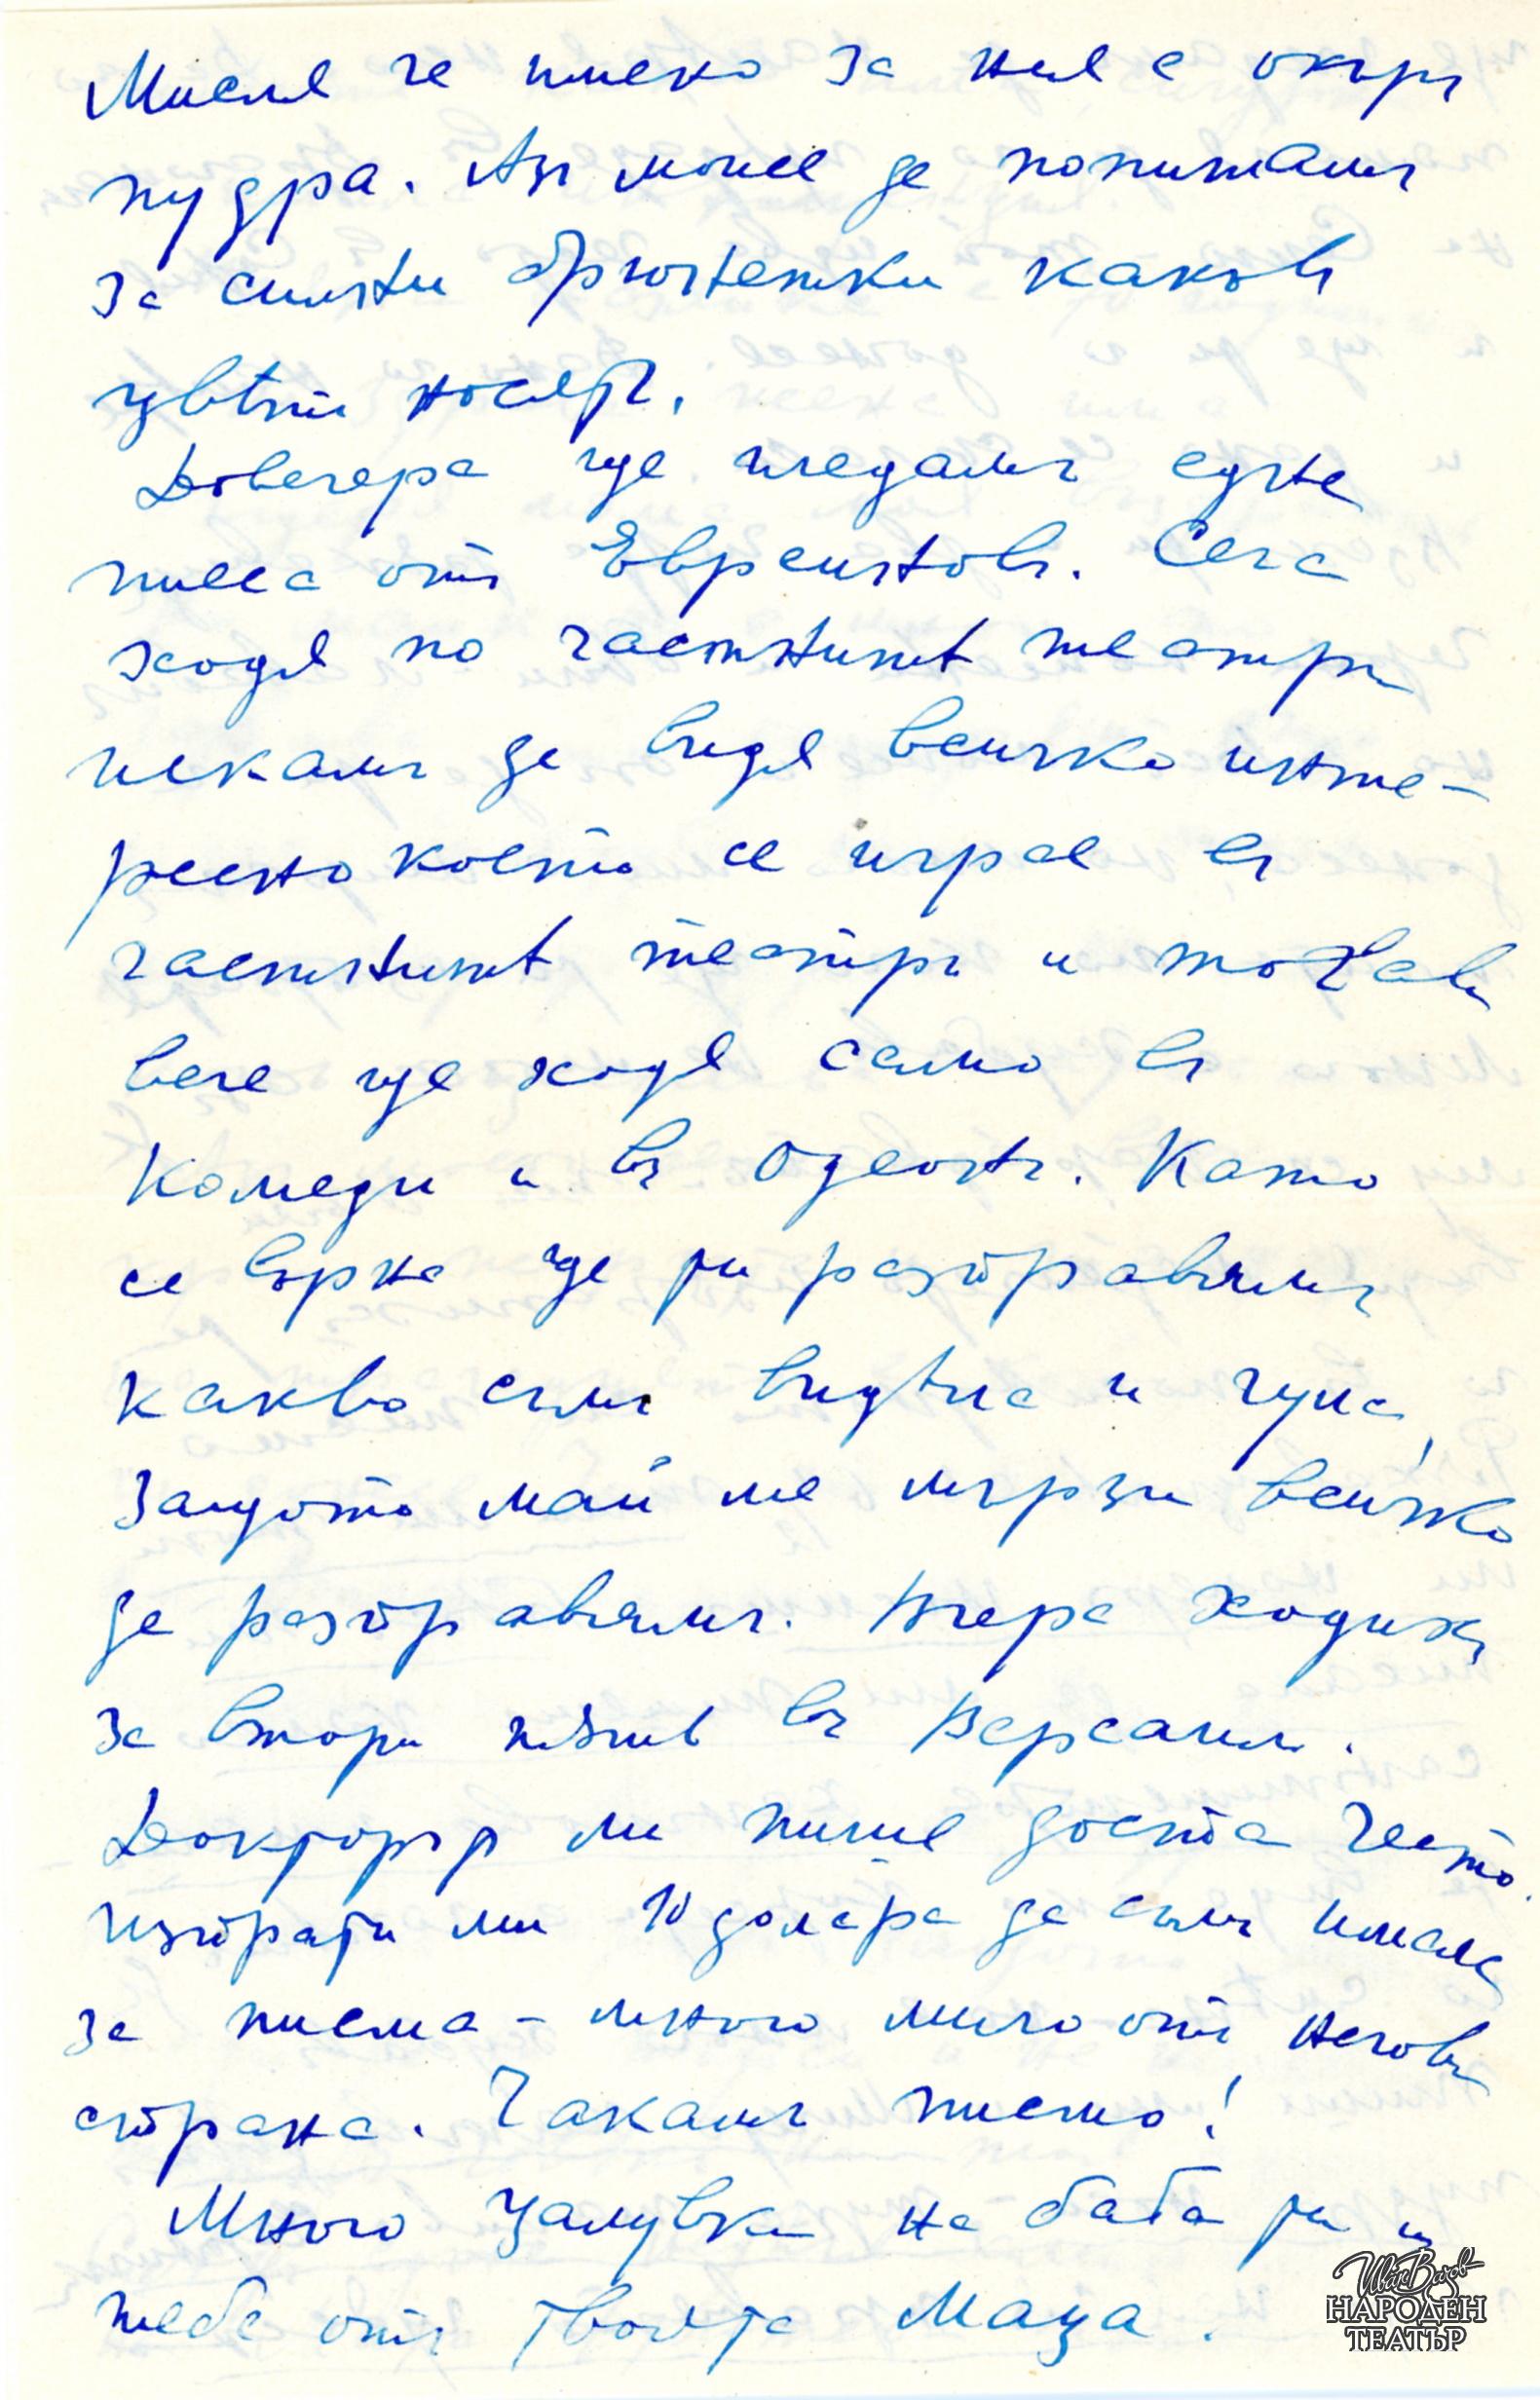 Мисля че пмеко за нея е окъръ
пудра. Азъ може да попитамъ
за силни брюнетки какъвъ
цвѣтъ носятъ.
Довечера ще гледамъ една
пиеса отъ Евреиновъ. Сега
ходя по частнитѣ театри
искамъ да видя всичко инте-
ресно което се играе въ
частнитѣ театри и тогава
вече ще ходя само въ
Комеди и въ Одеонъ. Като
се върна ще ти разправямъ
какво съмъ видѣла и чула,
защото май ме мързи всичко
да разправямъ. Вчера ходихъ
за втори пѫть въ Версаилъ.
Докторър ми пише доста често.
Изпрати ми 10 долара да съмъ имала
за писма - много мило отъ негова
страна. Чакамъ писмо!
Много целувки на баба ти и
тебе отъ твоята Маца.
Иван Вазов
НАРОДЕН
ТЕАТЪР